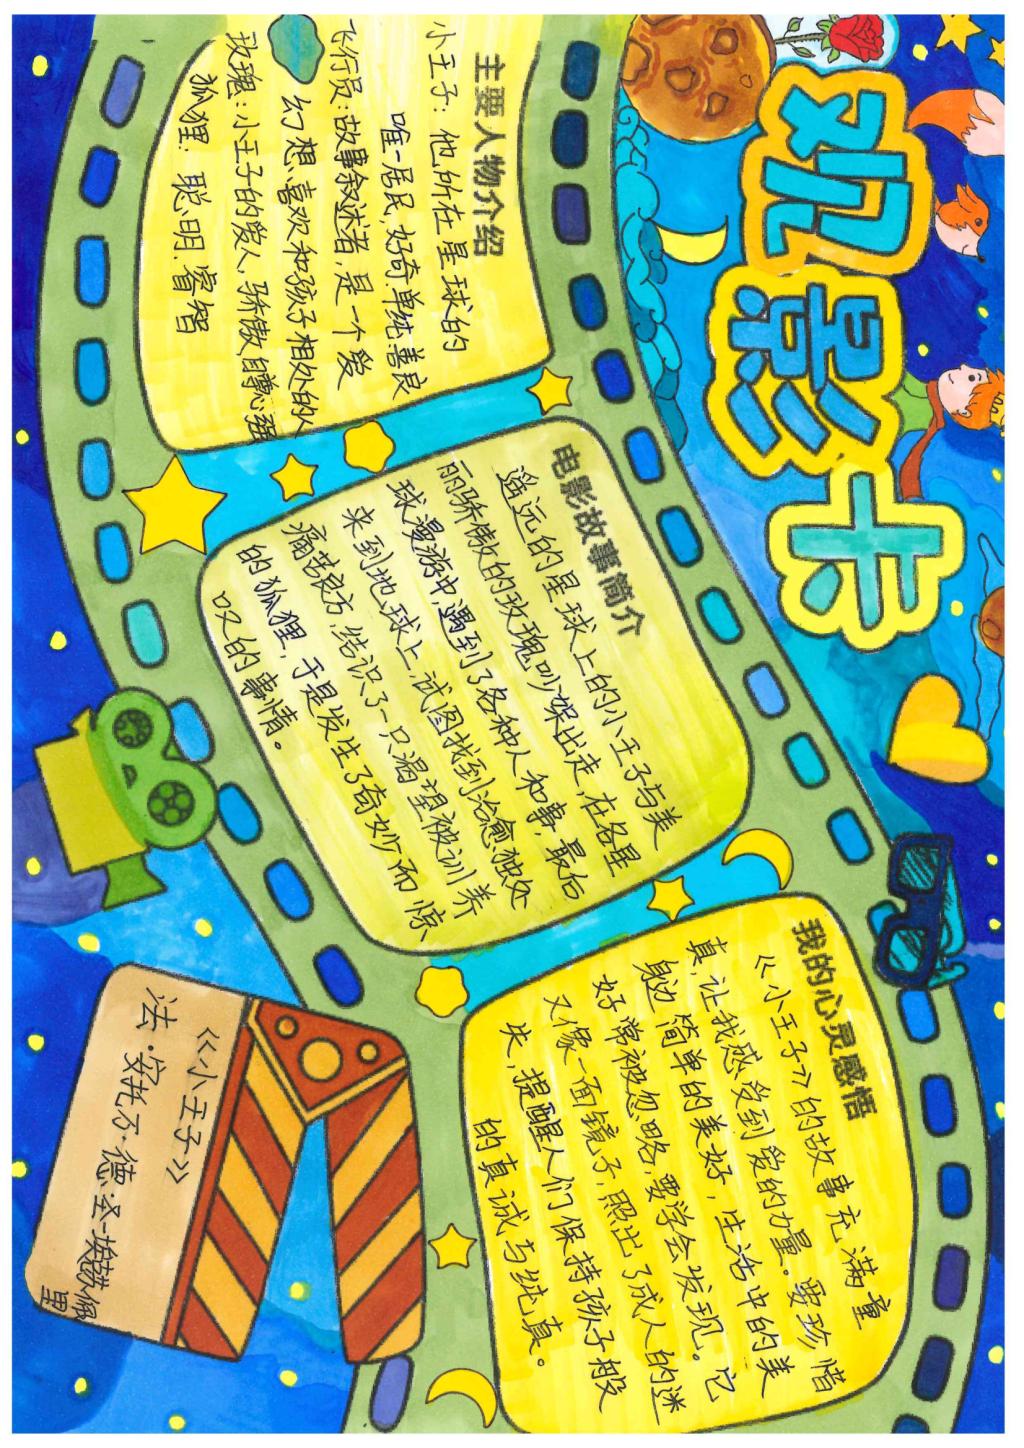 观影卡
主要人物介绍
小王子：他所在星球的
唯一居民，好奇.单纯.善良
飞行员：故事叙述者，是一个爱
幻想、喜欢和孩子相处的人
玫瑰：小王子的爱人，骄傲、自尊心强
狐狸：聪明.睿智
电影故事简介
遥远的星球上的小王子与美
丽骄傲的玫瑰吵架出走，在各星
球漫游中遇到了各种人和事，最后
来到地球上，试图找到治愈独处
痛苦良方，结识了一只渴望被训养
的狐狸，于是发生了奇妙而惊
叹的事情。
我的心灵感悟
《小王子》的故事充满童
真，让我感受到爱的力量。要珍惜
身边简单的美好，生活中的美
好常被忽略，要学会发现。它
又像一面镜子，照出了成人的迷
失，提醒人们保持孩子般
的真诚与纯真。
《小王子》
法·安托万·德·圣-埃克苏佩
里